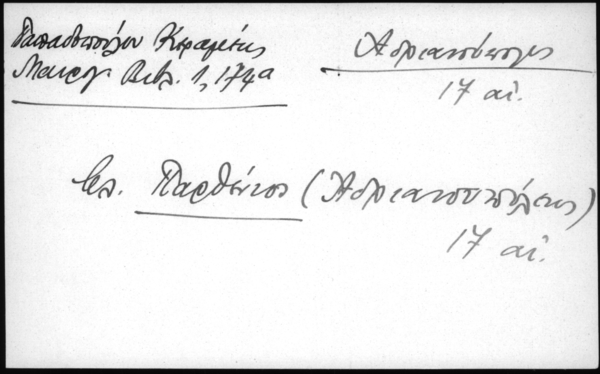 Παπαδοπούλου Κεραμέως
Μαυρογ. Βιβλ. 1, 174α
Αδριανούπολις
17 αἰ.
βλ. Παρθένιος (Αδριανουπόλεως)
17 αἰ.